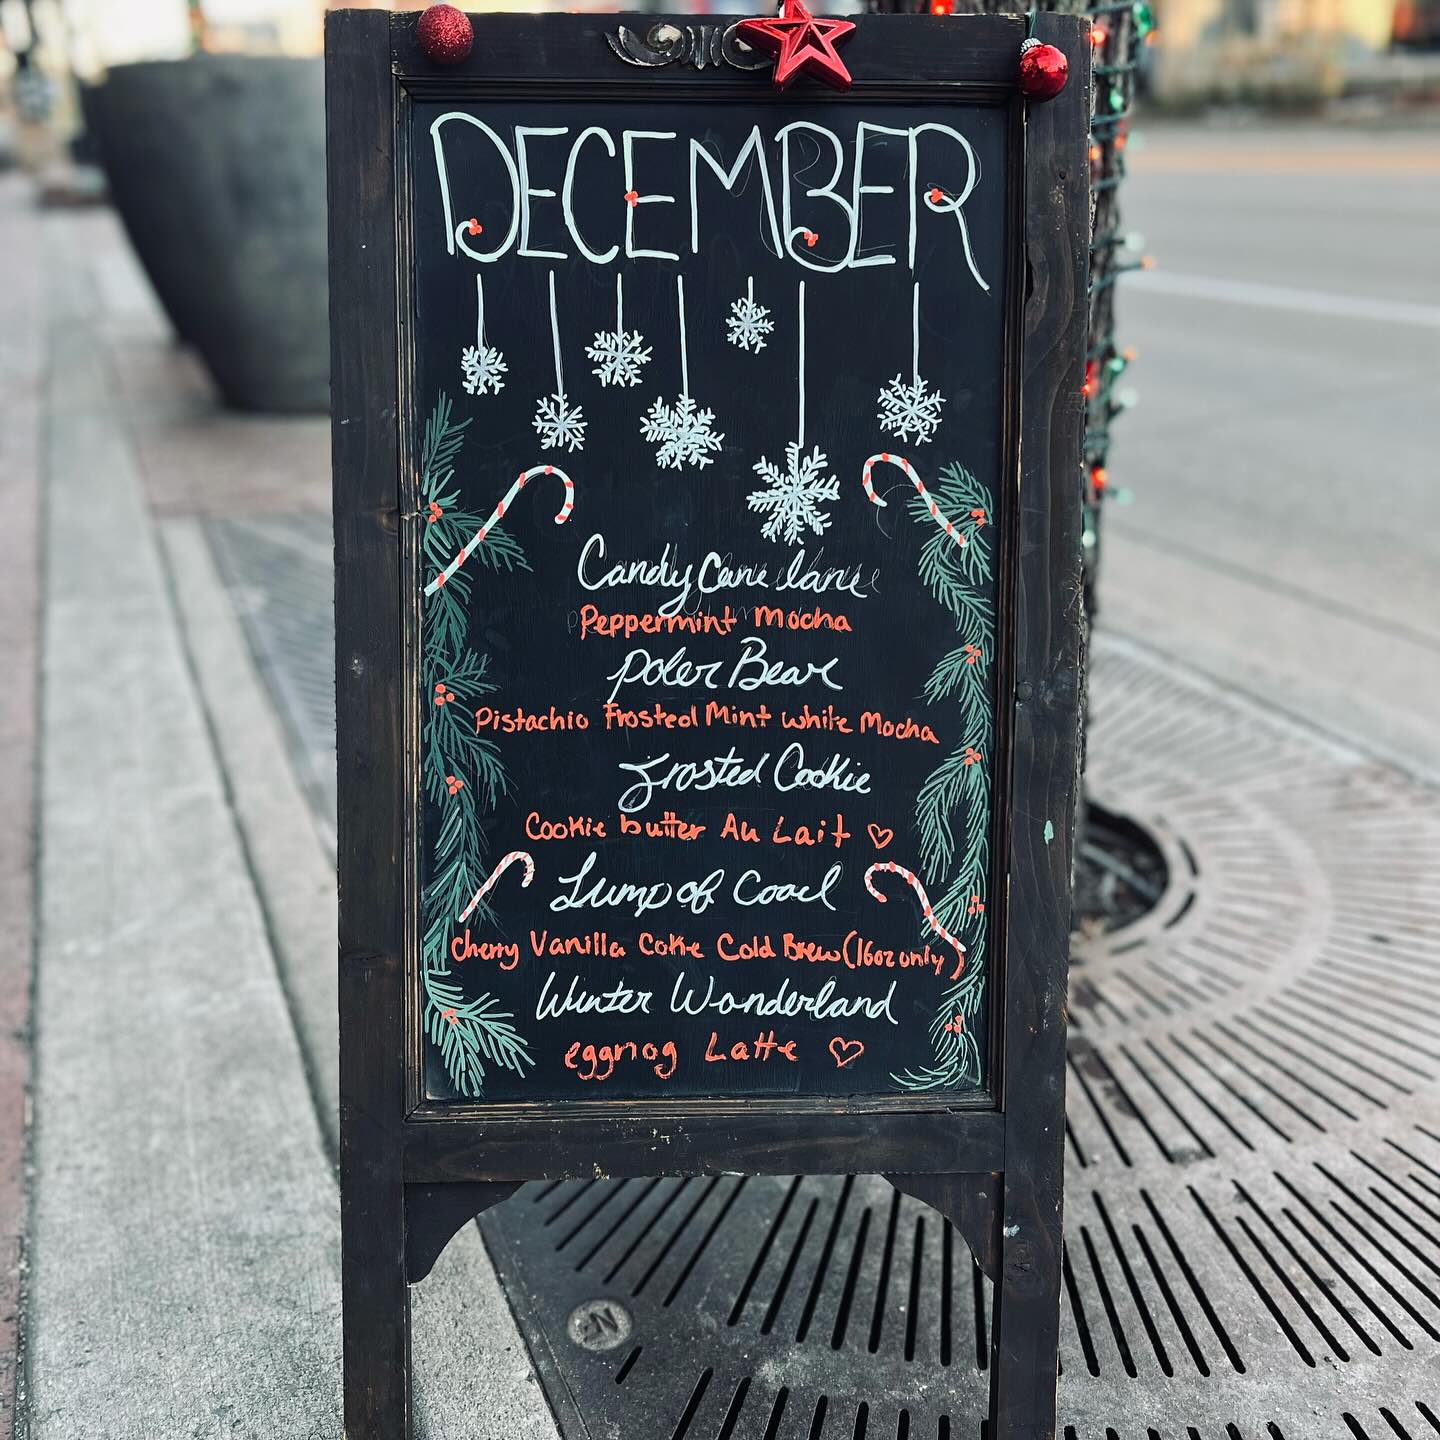 DECEMBER
Candy Cane lane
Peppermint Mocha
Poler Bear
Pistachio Frosted Mint white Mocha
Frosted Cookie
Cookie butter Au Lait
Lump of Coal
Cherry Vanilla Coke Cold Brew (16oz only)
Winter Wonderland
eggnog Latte